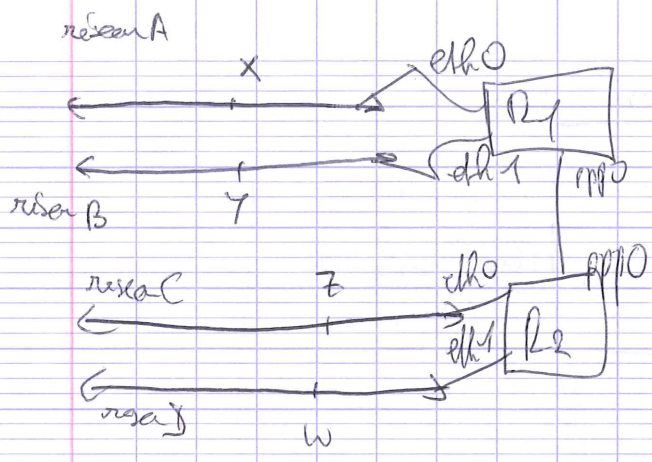 réseau A
X
eth0
R1
eth1
ppp0
réseau B
Y
réseau C
Z
eth0
ppp0
eth1
R2
résea D
W